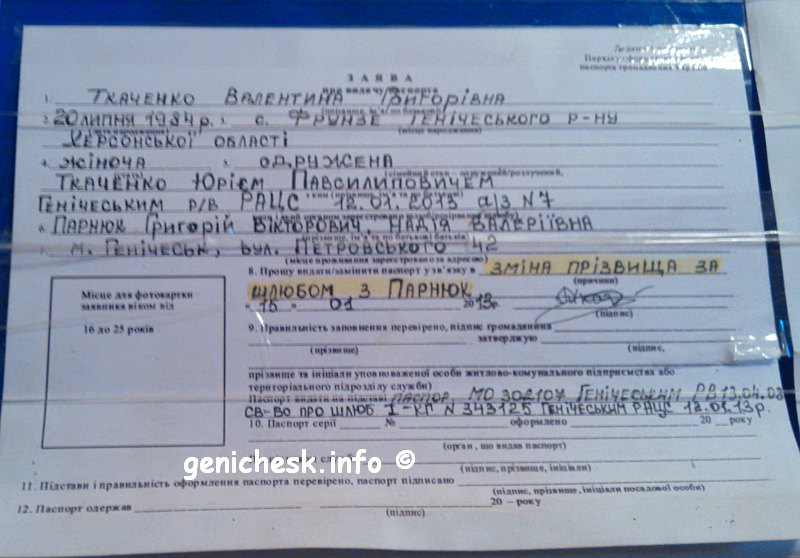 ЗАЯВА
про видачу паспорта
1. ТКАЧЕНКО ВАЛЕНТИНА ГРИГОРІВНА
(прізвище, ім'я, по батькові)
2. 20 ЛИПНЯ 1984 р. с. ФРУНЗЕ ГЕНІЧЕСЬКОГО Р-НУ
(дата народження) (місце народження)
ХЕРСОНСЬКОЇ ОБЛАСТІ
4. ЖІНОЧА 5. ОДРУЖЕНА
(стать) (сімейний стан – одружений/розлучений,
ТКАЧЕНКО ЮРІЄМ ПАВСИЛИПОВИЧЕМ
ГЕНІЧЕСЬКИМ Р/В РАЦС 12.01.2013 а/з N7
6. ПАРНЮК ГРИГОРІЙ ВІКТОРОВИЧ, НАДІЯ ВАЛЕРІЇВНА
(прізвище, ім'я та по батькові батьків)
7. М. ГЕНІЧЕСЬК, ВУЛ. ПЕТРОВСЬКОГО 42
(місце проживання зареєстровано за адресою)
8. Прошу видати/замінити паспорт у зв'язку в ЗМІНА ПРІЗВИЩА ЗА
(причини)
ШЛЮБОМ З ПАРНЮК
" 15 " 01 2013р.
(підпис)
Місце для фотокартки
заявника віком від
16 до 25 років
9. Правильність заповнення перевірено, підпис громадянина
затверджую
(прізвище) (підпис,
прізвище та ініціали уповноваженої особи житлово-комунального підприємства або
територіального підрозділу служби)
Паспорт видати на підставі ПАСПОР. МО 302107 ГЕНІЧЕСЬКИМ РВ 13.04.03
СВ-ВО ПРО ШЛЮБ І-КГ N 343125 ГЕНІЧЕСЬКИМ РАЦС 12.01.13р.
10. Паспорт серії № оформлено 20 року
(орган, що видав паспорт)
(підпис, прізвище, ініціали)
11. Підстави і правильність оформлення паспорта перевірено, паспорт підписано
(підпис, прізвище, ініціали посадової особи)
12. Паспорт одержав 20 – року
(підпис)
genichesk.info ©